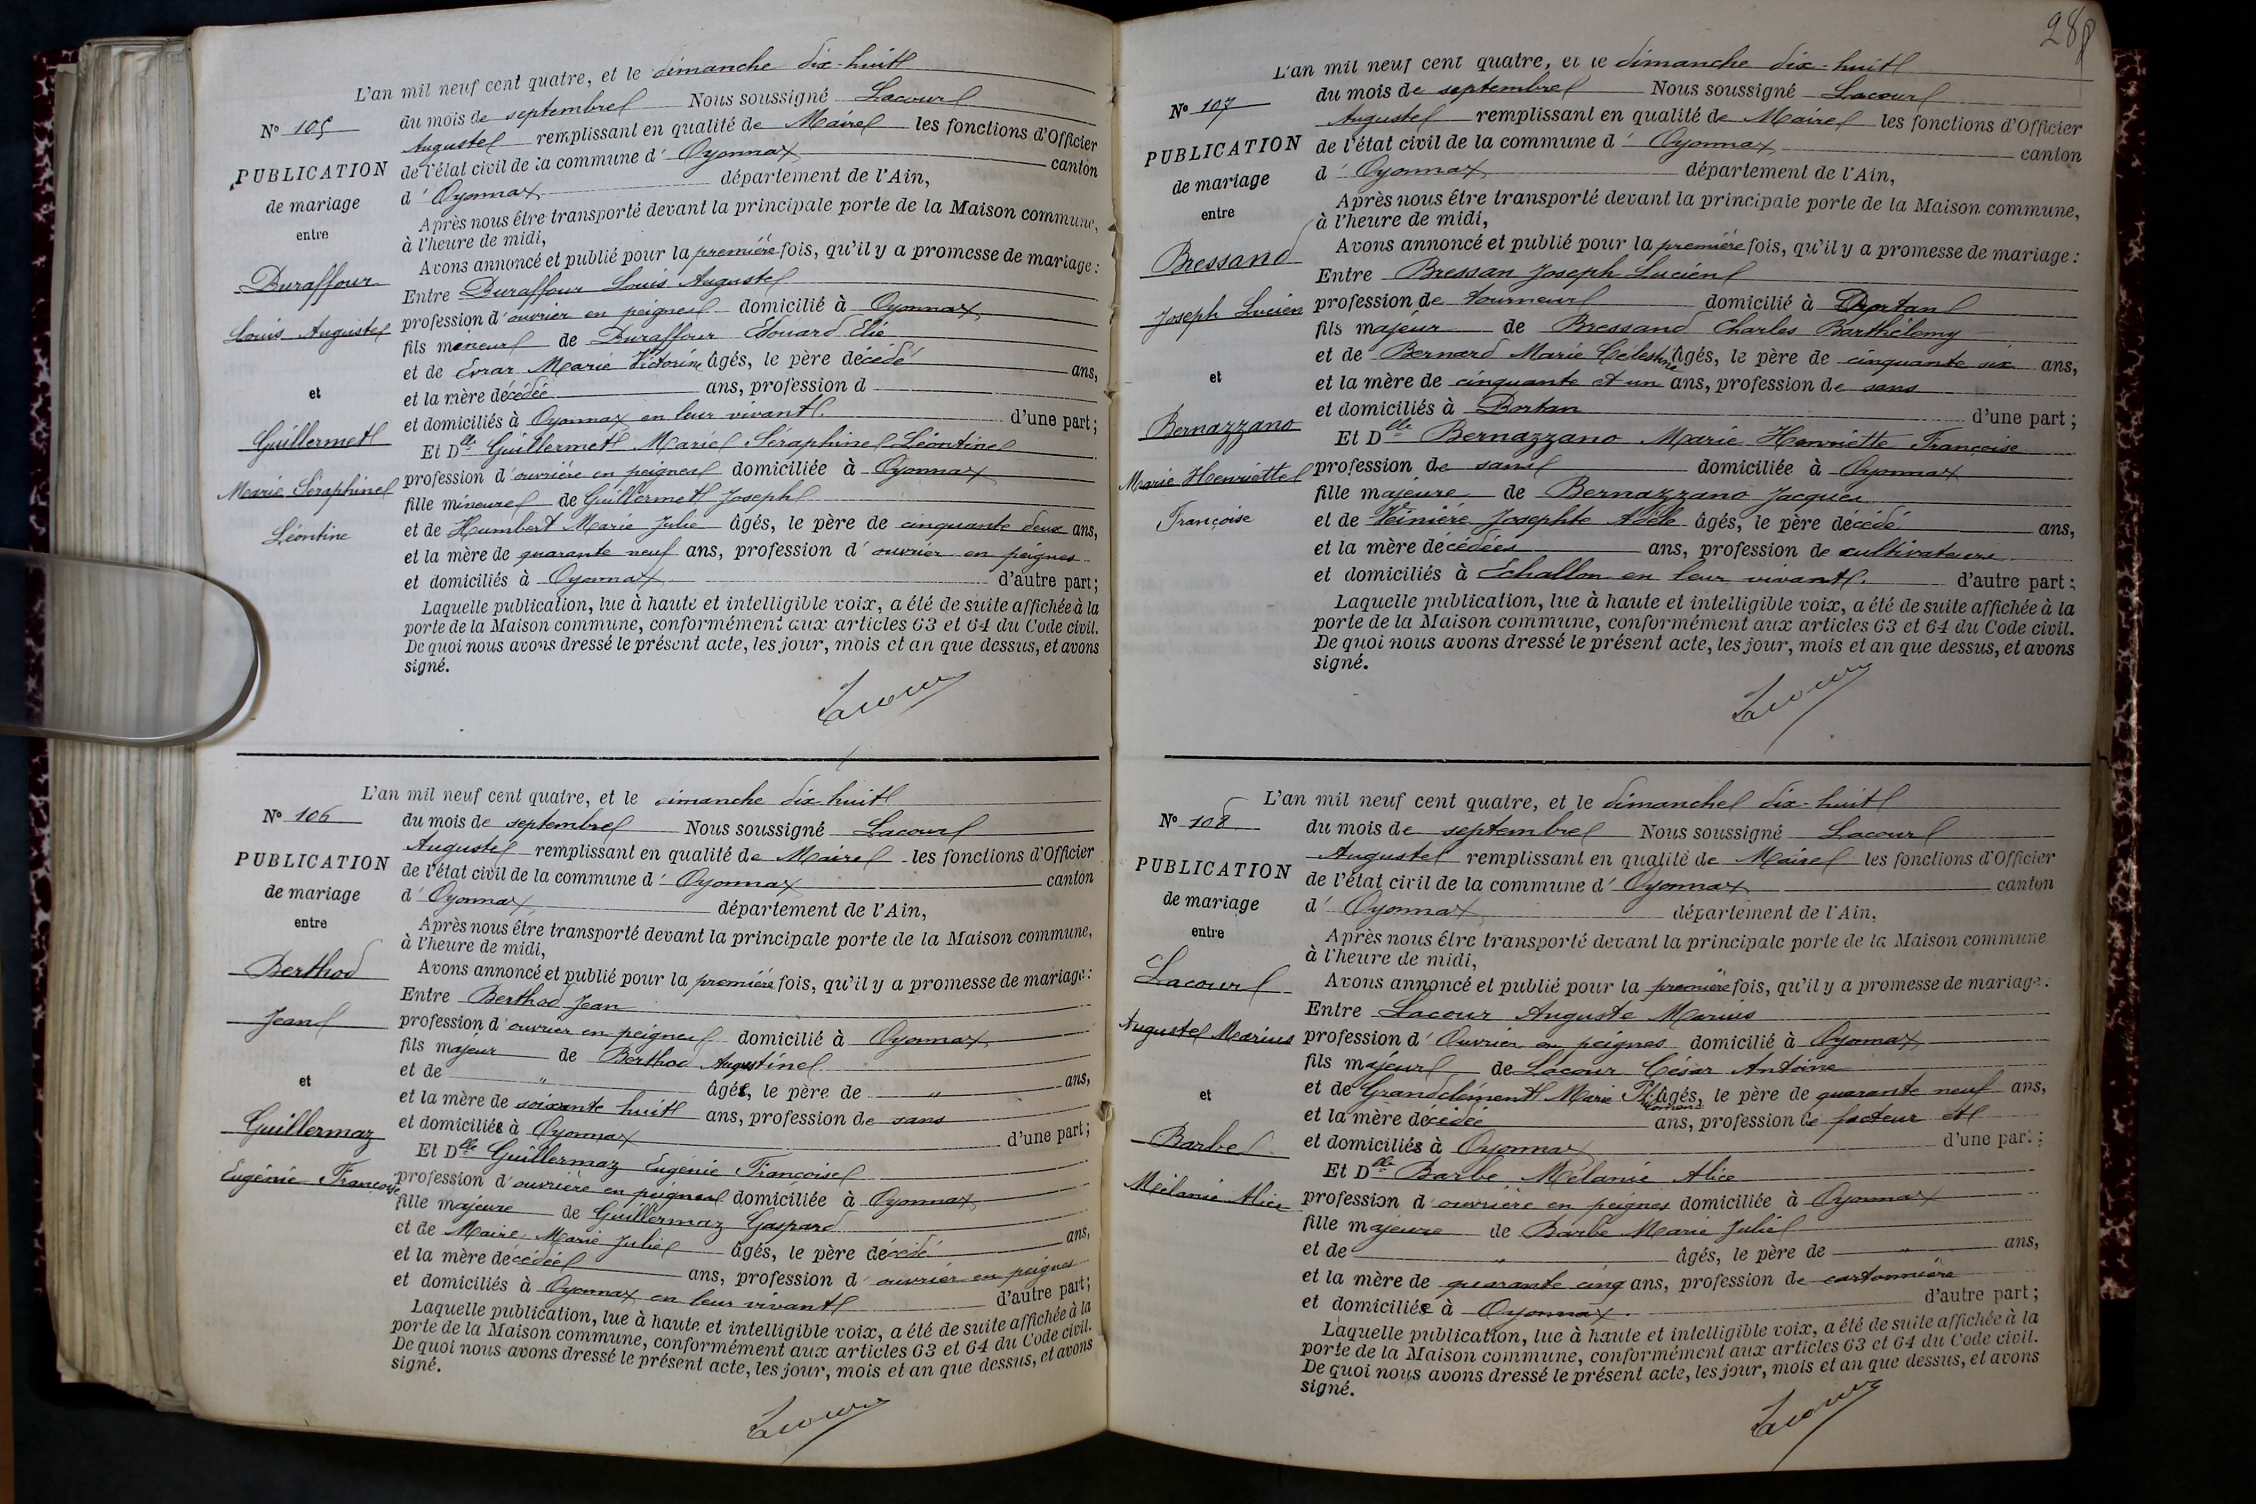 L'an mil neuf cent quatre, et le dimanche dix-huit
N° 105
du mois de septembre Nous soussigné Lacour
Auguste remplissant en qualité de Maire les fonctions d'Officier
PUBLICATION
de l'état civil de la commune d' Oyonnax canton
de mariage
d' Oyonnax département de l'Ain,
entre
Après nous être transporté devant la principale porte de la Maison commune,
à l'heure de midi,
Avons annoncé et publié pour la première fois, qu'il y a promesse de mariage :
Duraffour
Entre Duraffour Louis Auguste
Louis Auguste
profession d'ouvrier en peignes domicilié à Oyonnax
fils mineur de Duraffour Edouard Elie
et de Evrar Marie Victorine âgés, le père décédé ans,
et
et la mère décédée ans, profession d
et domiciliés à Oyonnax en leur vivant d'une part ;
Guillermet
Et Dlle Guillermet Marie Séraphine Léontine
Marie Séraphine
profession d'ouvrière en peignes domiciliée à Oyonnax
fille mineure de Guillermet Joseph
Léontine
et de Humbert Marie Julie âgés, le père de cinquante deux ans,
et la mère de quarante neuf ans, profession d'ouvrier en peignes
et domiciliés à Oyonnax d'autre part ;
Laquelle publication, lue à haute et intelligible voix, a été de suite affichée à la
porte de la Maison commune, conformément aux articles 63 et 64 du Code civil.
De quoi nous avons dressé le présent acte, les jour, mois et an que dessus, et avons
signé.
Lacour
L'an mil neuf cent quatre, et le dimanche dix-huit
N° 106
du mois de septembre Nous soussigné Lacour
Auguste remplissant en qualité de Maire les fonctions d'Officier
PUBLICATION
de l'état civil de la commune d' Oyonnax canton
de mariage
d' Oyonnax département de l'Ain,
entre
Après nous être transporté devant la principale porte de la Maison commune,
à l'heure de midi,
Berthod
Avons annoncé et publié pour la première fois, qu'il y a promesse de mariage :
Entre Berthod Jean
Jean
profession d'ouvrier en peignes domicilié à Oyonnax
fils majeur de Berthod Augustine
et de " âgés, le père de " ans,
et
et la mère de soixante huit ans, profession de sans
et domiciliés à Oyonnax d'une part ;
Guillermaz
Et Dlle Guillermaz Eugénie Françoise
Eugénie Françoise
profession d'ouvrière en peignes domiciliée à Oyonnax
fille majeure de Guillermaz Gaspard
et de Maire Marie Julie âgés, le père décédé ans,
et la mère décédée ans, profession d'ouvrier en peignes
et domiciliés à Oyonnax en leur vivant d'autre part ;
Laquelle publication, lue à haute et intelligible voix, a été de suite affichée à la
porte de la Maison commune, conformément aux articles 63 et 64 du Code civil.
De quoi nous avons dressé le présent acte, les jour, mois et an que dessus, et avons
signé.
Lacour
L'an mil neuf cent quatre, et le dimanche dix-huit
N° 107
du mois de septembre Nous soussigné Lacour
Auguste remplissant en qualité de Maire les fonctions d'Officier
PUBLICATION
de l'état civil de la commune d' Oyonnax canton
de mariage
d' Oyonnax département de l'Ain,
entre
Après nous être transporté devant la principale porte de la Maison commune,
à l'heure de midi,
Avons annoncé et publié pour la première fois, qu'il y a promesse de mariage :
Bressand
Entre Bressan Joseph Lucien
Joseph Lucien
profession de tourneur domicilié à Dortan
fils majeur de Bressand Charles Barthélemy
et de Bernard Marie Célestine âgés, le père de cinquante six ans,
et
et la mère de cinquante et un ans, profession de sans
et domiciliés à Dortan d'une part ;
Bernazzano
Et Dlle Bernazzano Marie Henriette Françoise
Marie Henriette
profession de sans domiciliée à Oyonnax
fille majeure de Bernazzano Jacques
Françoise
et de Josephte Adèle âgés, le père décédé ans,
et la mère décédées ans, profession de cultivateurs
et domiciliés à Echallon en leur vivant d'autre part ;
Laquelle publication, lue à haute et intelligible voix, a été de suite affichée à la
porte de la Maison commune, conformément aux articles 63 et 64 du Code civil.
De quoi nous avons dressé le présent acte, les jour, mois et an que dessus, et avons
signé.
Lacour
L'an mil neuf cent quatre, et le dimanche dix-huit
N° 108
du mois de septembre Nous soussigné Lacour
Auguste remplissant en qualité de Maire les fonctions d'Officier
PUBLICATION
de l'état civil de la commune d' Oyonnax canton
de mariage
d' Oyonnax département de l'Ain,
entre
Après nous être transporté devant la principale porte de la Maison commune
à l'heure de midi,
Lacour
Avons annoncé et publié pour la première fois, qu'il y a promesse de mariage :
Entre Lacour Auguste Marius
Auguste Marius
profession d' Ouvrier en peignes domicilié à Oyonnax
fils majeur de Lacour César Antoine
et de Grandclément Marie Philomène âgés, le père de quarante neuf ans,
et
et la mère décédée ans, profession de facteur
et domiciliés à Oyonnax d'une part ;
Barbe
Et Dlle Barbe Mélanie Alice
Mélanie Alice
profession d'ouvrière en peignes domiciliée à Oyonnax
fille majeure de Barbe Marie Julie
et de " âgés, le père de " ans,
et la mère de quarante cinq ans, profession de cartonnière
et domiciliée à Oyonnax d'autre part ;
Laquelle publication, lue à haute et intelligible voix, a été de suite affichée à la
porte de la Maison commune, conformément aux articles 63 et 64 du Code civil.
De quoi nous avons dressé le présent acte, les jour, mois et an que dessus, et avons
signé.
Lacour